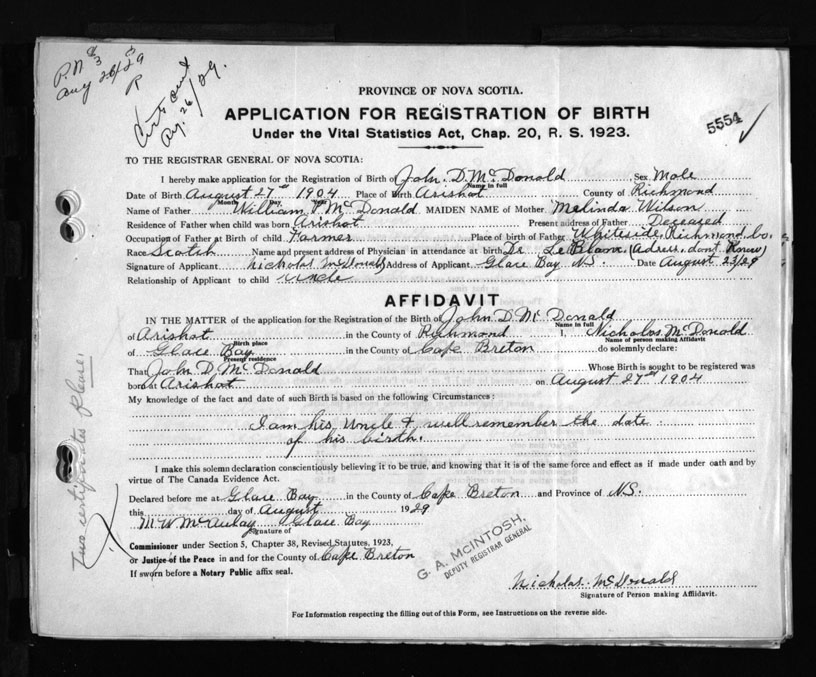 P.N. $3
Aug 26/29
R
Certs sent
Ag. 26/29.
PROVINCE OF NOVA SCOTIA.
APPLICATION FOR REGISTRATION OF BIRTH
Under the Vital Statistics Act, Chap. 20, R. S. 1923.
5554
TO THE REGISTRAR GENERAL OF NOVA SCOTIA:
I hereby make application for the Registration of Birth of John. D. Mc Donald Sex Male
Name in full
Date of Birth August 27th 1904 Place of Birth Arishat County of Richmond
Month Day Year
Name of Father William Mc Donald MAIDEN NAME of Mother Melinda Wilson
Residence of Father when child was born Arishat Present address of Father Deceased
Occupation of Father at Birth of child Farmer Place of birth of Father Whiteside, Richmond Co.
Race Scotch Name and present address of Physician in attendance at birth Dr Le Blanc (Adress dont Know)
Signature of Applicant Nicholas McDonald Address of Applicant Glace Bay N.S. Date August 23/29
Relationship of Applicant to child Uncle
AFFIDAVIT
IN THE MATTER of the application for the Registration of the Birth of John D. Mc Donald
Name in full
of Arishat in the County of Richmond I, Nicholas McDonald
Birth place Name of person making Affidavit
of Glace Bay in the County of Cape Breton do solemnly declare:
Present residence
That John D. Mc Donald Whose Birth is sought to be registered was
born at Arishat on August 27th 1904
My knowledge of the fact and date of such Birth is based on the following Circumstances :
I am his Uncle & well remember the date
of his birth.
I make this solemn declaration conscientiously believing it to be true, and knowing that it is of the same force and effect as if made under oath and by
virtue of The Canada Evidence Act.
Declared before me at Glace Bay in the County of Cape Breton and Province of N.S.
this day of August 1929
M W McAulay Glace Bay
Signature of
Commissioner under Section 5, Chapter 38, Revised Statutes, 1923,
or Justice of the Peace in and for the County of Cape Breton
If sworn before a Notary Public affix seal.
G. A. McINTOSH,
DEPUTY REGISTRAR GENERAL
Nicholas McDonald
Signature of Person making Affidavit.
For Information respecting the filling out of this Form, see Instructions on the reverse side.
Two certificates Please: